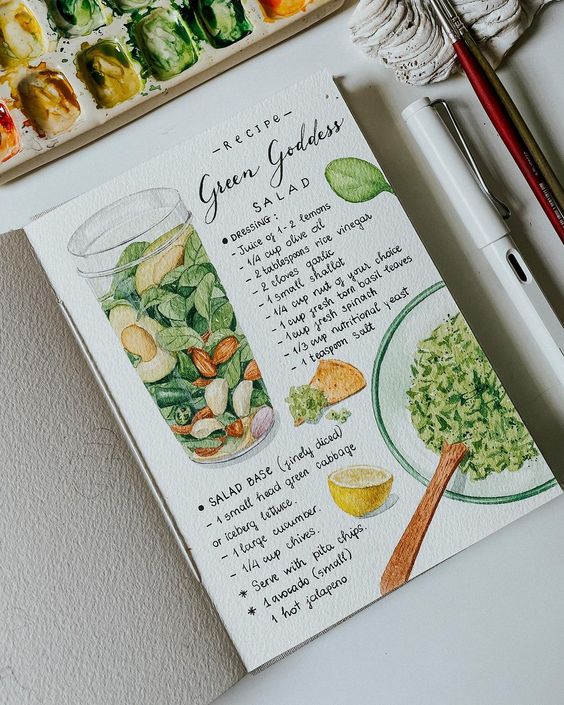 -RECIPE-
Green Goddess
SALAD
• DRESSING:
- Juice of 1-2 lemons
- 1/4 cup olive oil
- 2 tablespoons rice vinegar
- 2 cloves garlic
- 1 small shallot
- 1/4 cup nut of your choice
- 1 cup fresh torn basil leaves
- 1 cup fresh spinach
- 1/3 cup nutritional yeast
- 1 teaspoon salt
• SALAD BASE (finely diced)
- 1 small head green cabbage
or iceberg lettuce.
- 1 large cucumber.
- 1/4 cup chives.
* Serve with pita chips.
* 1 avocado (small)
1 hot jalapeno